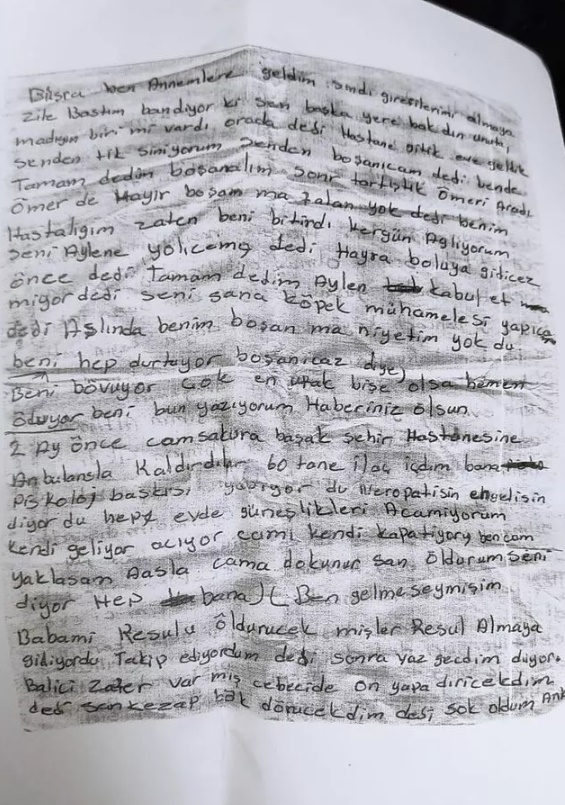 Büşra ben Annemlere geldim şimdi giresilerimi almaya
Zile Bastım bandiyor ki sen başka yere bakdın unut,
madıyın biri mi vardı orada dedi Hastane gitik eve geldik
senden tik siniyorum Senden boşanıcam dedi bende
Tamam dedim boşanalım sonr tartıştık Ömeri Aradı
Ömer de Hayir boşan ma falan yok dedi benim
Hastalıgım zaten beni bitirdi hergün Ağlıyorum
Seni Aylene yolıcemg dedi Hayra boluya gidicez
önce dedi Tamam dedim Aylen kabul et
miyor dedi seni sana köpek muhamelesi yapıca
dedi Aslında benim boşan ma niyetim yok du
beni hep durtuyor boşanıcaz diye)
Beni bövüyor çok en ufak bişe olsa hemen
öduyor beni bun yazıyorum Haberiniz olsun
2 Ay önce camsakura başak şehir Hastanesine
Anbulansla Kaldırdılar 60 tane ilaç içdim bana
piskoloj baskısı yapıyor du Neropatisin engelisin
diyor du hep evde güneşlikleri Acamıyorum
kendi geliyor acıyor camı kendi kapatiyory ben cam
yaklasam Aasla cama dokunur san öldurum Seni
diyor Hep bana) (Ben gelmeseymişim
Babami Resulu öldurucek mişler Resul Almaya
gidiyordu Takip ediyordum dedi sonra vaz gecdim diyor.
Balici Zafer var mış cebecide on yapa diricekdim
dedi sen kezap bak dörücekdim desi şok oldum Ank